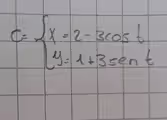 C= { x = 2 - 3cos t
y = 1 + 3sen t